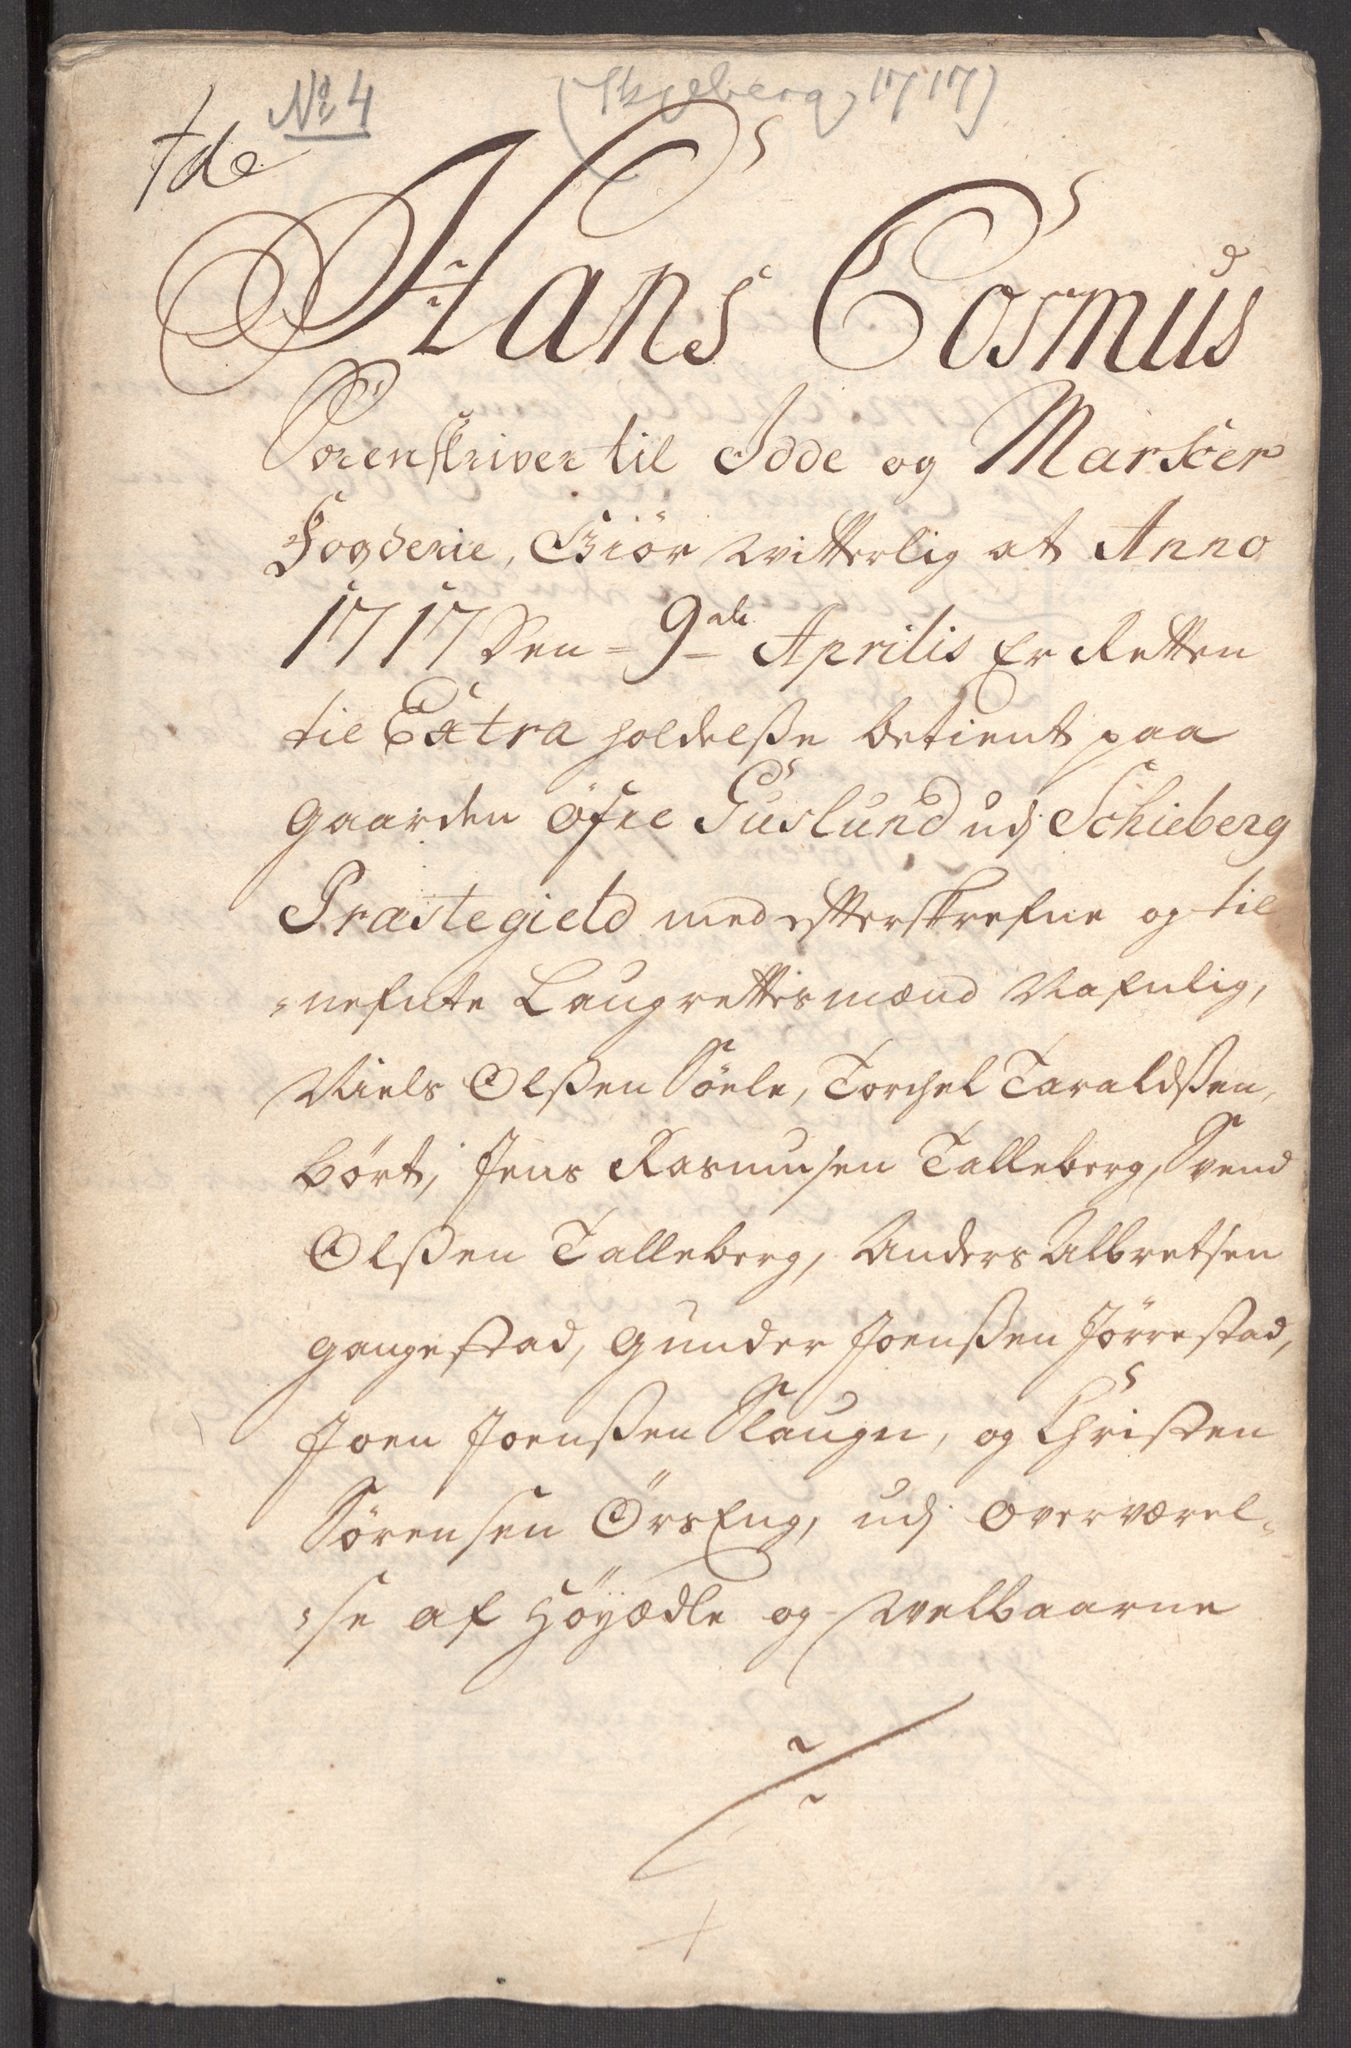 No 4 (Skjeberg 1717)
Hans Cosmus
Sorenskriver til Idde og Marker
Fogderie, Giör witterlig at Anno
1717 den 9de Aprilis Er Retten
til Extra holdelsße betient paa
gaarden öfre Guslund udj Schieberg
Præstegield med efterskrefne og til
nefnte Laugrettismænd Nafnlig,
Niels Olßen Söele, Torchel Taraldßen,
Bört, Jens Rasmusen Talleberg, Svend
Olßen Talleberg, Anders Albretsen
gangestad, Gunder Joenßen Jörrestad,
Joen Joenßen Slaugn, og Christen
Sörensen ÖrsEng, udj overværel-
se af Höyædle og Welbaarne